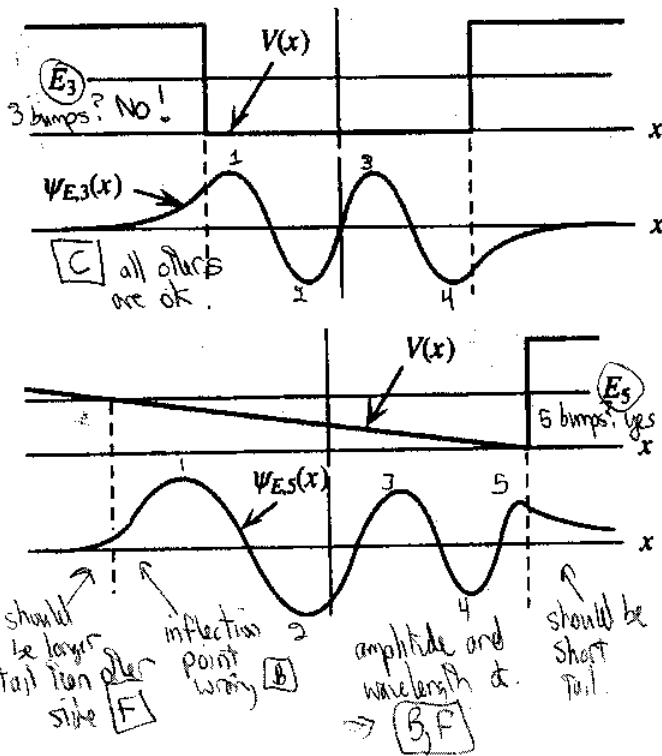 V(x)
E₃
3 bumps? No!
x
1
3
ψE,3(x)
x
C all others
are ok.
2
4
V(x)
E₅
5 bumps? yes
x
1
ψE,5(x)
3
5
x
2
4
should
be longer
tail than other
side F
inflection
point
wrong B
amplitude and
wavelength
→ B, F
should be
short
tail.